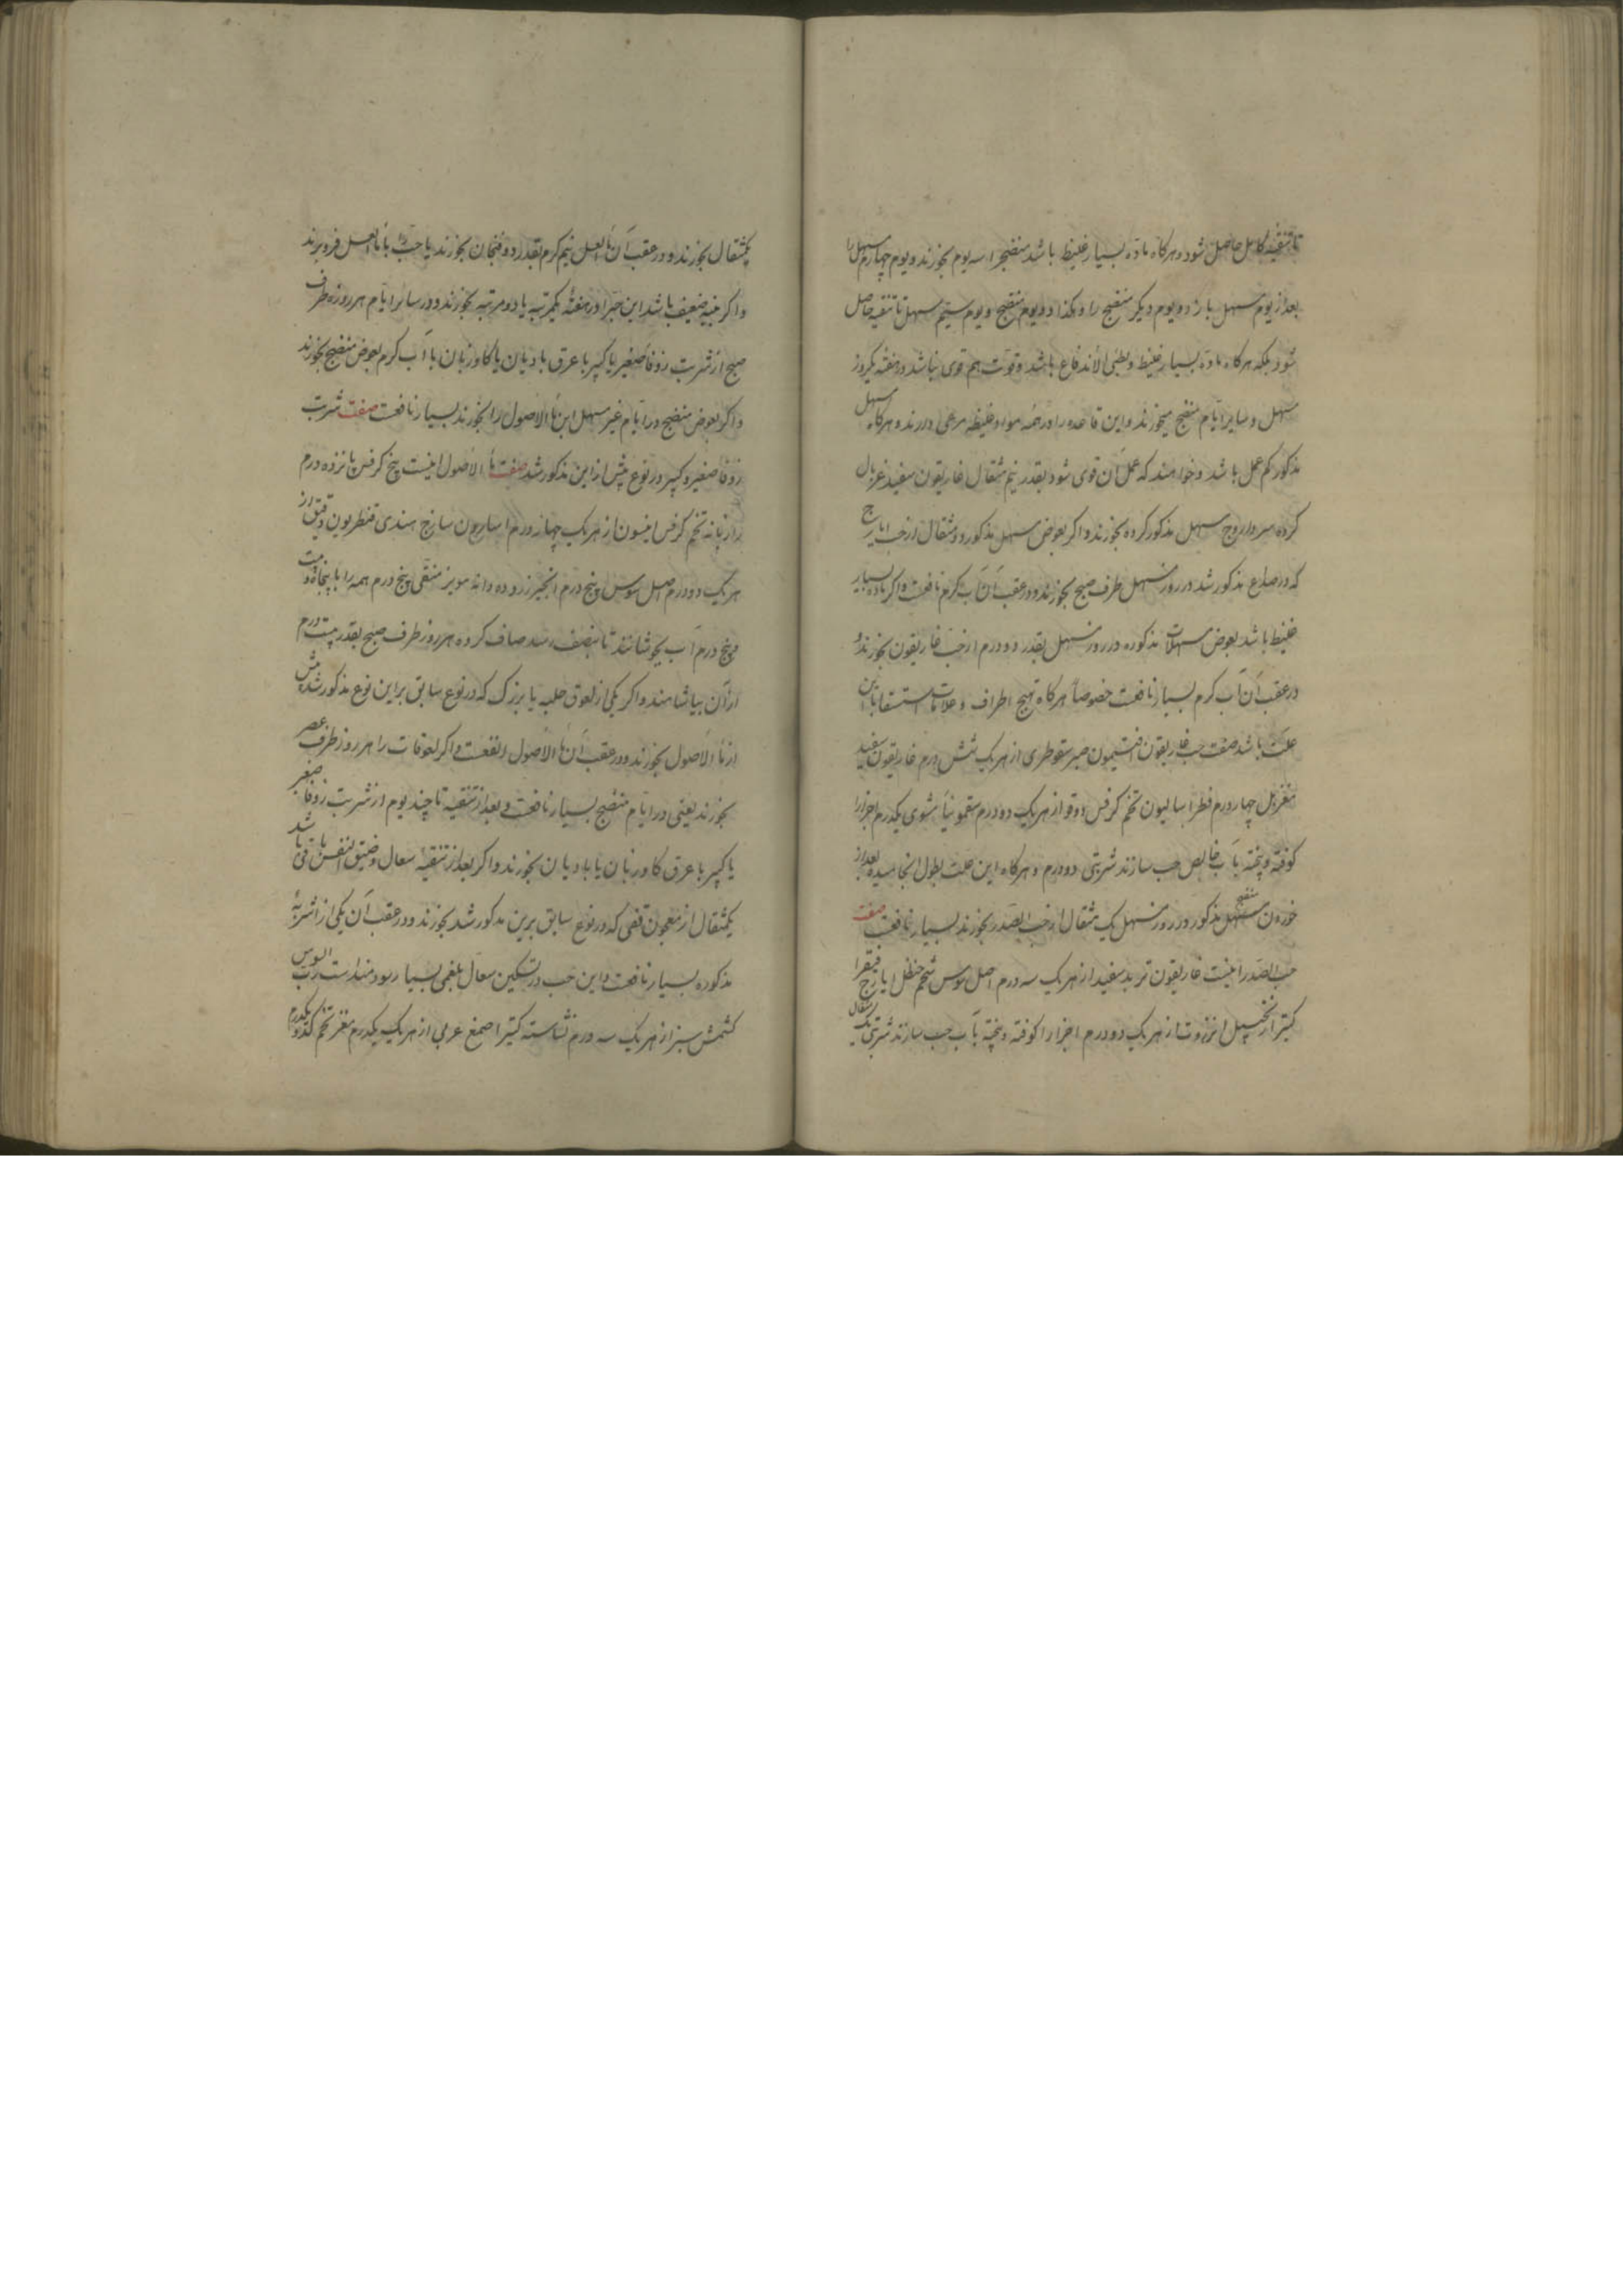 تا تنقیه کامل حاصل شود و هرکاه ماده بسیار غلیظ باشد منضج را سه یوم بخورند و یوم چهارم مسهل را
بعد از یوم مسهل باز دو یوم دیکر منضج را و هکذا دو یوم منضج و یوم سیم مسهل تا تنقیه حاصل
شود بلکه هرکاه ماده بسیار غلیظ و بطئی الاندفاع باشد و قوت هم قوی نباشد در هفته یکروز
مسهل و سایر ایام منضج میخورند و این قاعده را در همه مواد غلیظه مرعی دارند و هرکاه مسهل
مذکور کم عمل باشد و خواهند که عمل آن قوی شود بقدر نیم مثقال غاریقون سفید غربال
کرده سر داروی مسهل مذکور کرده بخورند و اکر بعوض مسهل مذکور دو مثقال از حب ایارج
که در صداع مذکور شد در روز مسهل طرف صبح بخورند و در عقب آن آب کرم نافعست و اکر ماده بسیار
غلیظ باشد بعوض مسهلات مذکوره در روز مسهل بقدر دو درم از حب غاریقون بخورند و
در عقب آن آب کرم بسیار نافعست خصوصاً هرکاه تهبج اطراف و علامات استسقا با این
علت باشد صفت حب غاریقون افتیمون صبر سقوطری از هر یک شش درم غاریقون سفید
مغربل چهار درم فطراسالیون تخم کرفس دوقو از هر یک دو درم سقمونیا مشوی یکدرم اجزا را
کوفته و پخته با آب خالص حب سازند شربتی دو درم و هرکاه این علت بطول انجامیده بعد از
خوردن منضج مذکور در روز مسهل یک مثقال از حب الصدر بخورند بسیار نافعست صفت
حب الصدر اینست غاریقون تربد سفید از هر یک سه درم اصل سوس شحم حنظل ایارج فیقرا
کتیرا زنجبیل انزروت از هر یک دو درم اجزا را کوفته و پخته با آب حب سازند شربتی یک مثقال
یکمثقال بخورند و در عقب آن ماء العسل نیم کرم بقدر دو فنجان بخورند یا حب را با ماء العسل فرو برند
و اکر بنیه ضعیف باشد این حب را در هفته یکمرتبه یا دو مرتبه بخورند و در سایر ایام هر روزه طرف
صبح از شربت زوفا صغیر یا کبیر با عرق بادیان یا کاوزبان یا آب کرم بعوض منضج بخورند
و اکر بعوض منضج در ایام غیر مسهل این ماء الاصول را بخورند بسیار نافعست صفت شربت
زوفا صغیر و کبیر در نوع پیش از این مذکور شد صفت ماء الاصول اینست بیخ کرفس پانزده درم
رازیانه تخم کرفس انیسون از هر یک چهار درم اسارون سازج هندی قنطریون دقیق از
هر یک دو درم اصل سوس پنج درم انجیر زرد ده دانه مویز منقی پنج درم همه را با پنجاه و بیست
و پنج درم آب بجوشانند تا بنصف رسد صاف کرده هر روز طرف صبح بقدر بیست درم
از آن بیاشامند و اکر یکی از لعوق حلبه یا بزرک که در نوع سابق براین نوع مذکور شد پیش
از ماء الاصول بخورند و در عقب آن ماء الاصول انفعست و اکر لعوقات را هر روز طرف عصر
بخورند یعنی در ایام منضج بسیار نافعست و بعد از تنقیه تا چند یوم از شربت زوفا صغیر
یا کبیر با عرق کاوزبان یا بادیان بخورند و اکر بعد از تنقیه سعال و ضیق النفس باقی باشد
یکمثقال از معجون قفی که در نوع سابق برین مذکور شد بخورند و در عقب آن یکی از اشربه
مذکوره بسیار نافعست و این حب در تسکین سعال بلغمی بسیار سودمنداست رب السوس
کشمش سبز از هر یک سه درم نشاسته کتیرا صمغ عربی از هر یک یکدرم مغز تخم کدو یکدرم